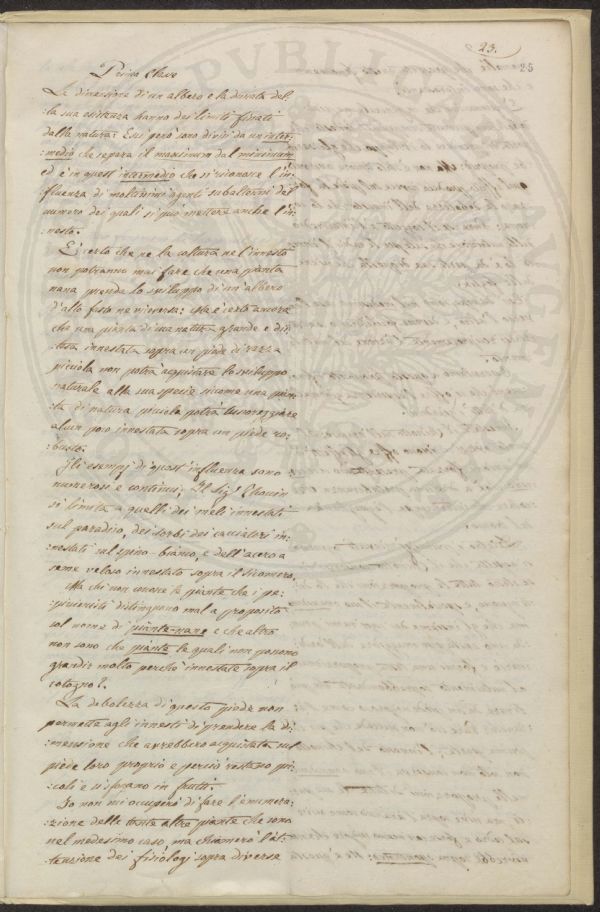 23.
25
Prima Classe
Le dimensione di un albero e la durata del-
:la sua esistenza hanno dei limiti fissati
dalla natura: Essi però sono divisi da un inter-
:medio che separa il maximum dal minimum
ed è in quest'intermedio che si riconosce l'in-
fluenza di moltissimi agenti subalterni del
numero dei quali si può mettere anche l'in-
nesto.
E' certo che ne la coltura ne l'innesto
non potranno mai fare che una pianta
nana prenda lo sviluppo di un albero
d'alto fusto ne viceversa: Ma è certo ancora
che una pianta di sua natura grande e di-
stesa innestata sopra un piede di razza
piccola non potrà acquistare lo sviluppo
naturale alla sua specie siccome una pian-
:ta di natura piccola potrà lussoreggiare
alcun poco innestata sopra un piede ro-
:busto.
Gli esempj di quest'influenza sono
numerosi e continui; Il Sig.r Thouin
si limita a quelli dei meli innestati
sul paradiso, dei sorbi dei cacciatori in-
:nestati sul spino-bianco, e dell'acero a
seme veloso innestato sopra il sicomoro.
Ma chi non conosce le piante che i pe-
:pinieristi distinguono mal a proposito
col nome di piante-nane e che altro
non sono che piante le quali non possono
grandir molto perchè innestate sopra il
cotogno?
La debolezza di questo piede non
permette agli innesti di prendere la di-
:mensione che avrebbero acquistata sul
piede loro proprio e perciò restano pi-
:coli e si sforzano in frutti.
Io non mi occuperò di fare l'enumera-
:zione delle tante altre piante che sono
nel medesimo caso, ma chiamerò l'at-
:tenzione dei fisiologi sopra diverse